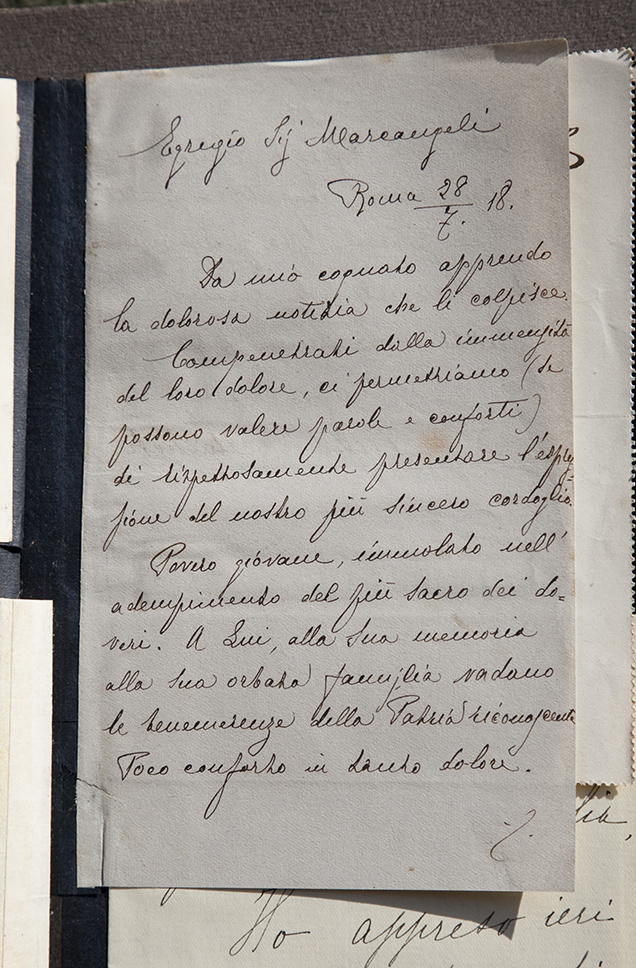 Egregio Sig Marcangeli
Roma 28/7. 18.
Da mio cognato apprendo
la dolorosa notizia che li colpisce.
Compenetrati dalla immensità
del loro dolore, ci permettiamo (se
possono valere parole e conforti)
di rispettosamente presentare l'espres=
sione del nostro più sincero cordoglio.
Povero giovane, immolato nell'
adempimento del più sacro dei do=
veri. A Lui, alla sua memoria
alla sua orbata famiglia vadano
le benemerenze della Patria riconoscente
Poco conforto in tanto dolore.
Ho appreso ieri